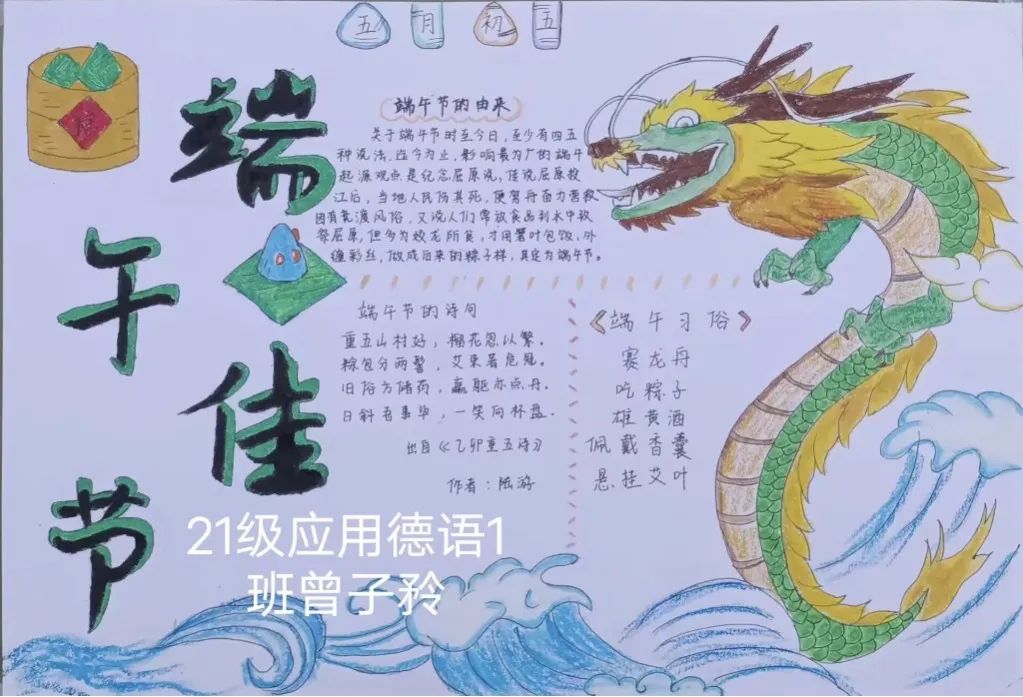 五月初五
端
午
佳
节
端午节的由来
关于端午节时至今日,至少有四五
种说法,迄今为止,影响最为广的端午
起源观点是纪念屈原说,传说屈原投
江后,当地人民伤其死,便驾舟奋力营救
因有竞渡风俗,又说人们常放食品到水中致
祭屈原,但多为蛟龙所食,才用箬叶包饭,外
缠彩丝,做成后来的粽子样,其定为端午节。
端午节的诗句
重五山村好,榴花忽以繁。
粽包分两髻,艾束著危冠。
旧俗方储药,羸躯亦点丹。
日斜吾事毕,一笑向杯盘。
出自《乙卯重五诗》
作者:陆游
《端午习俗》
赛龙舟
吃粽子
雄黄酒
佩戴香囊
悬挂艾叶
21级应用德语1
班曾子矜